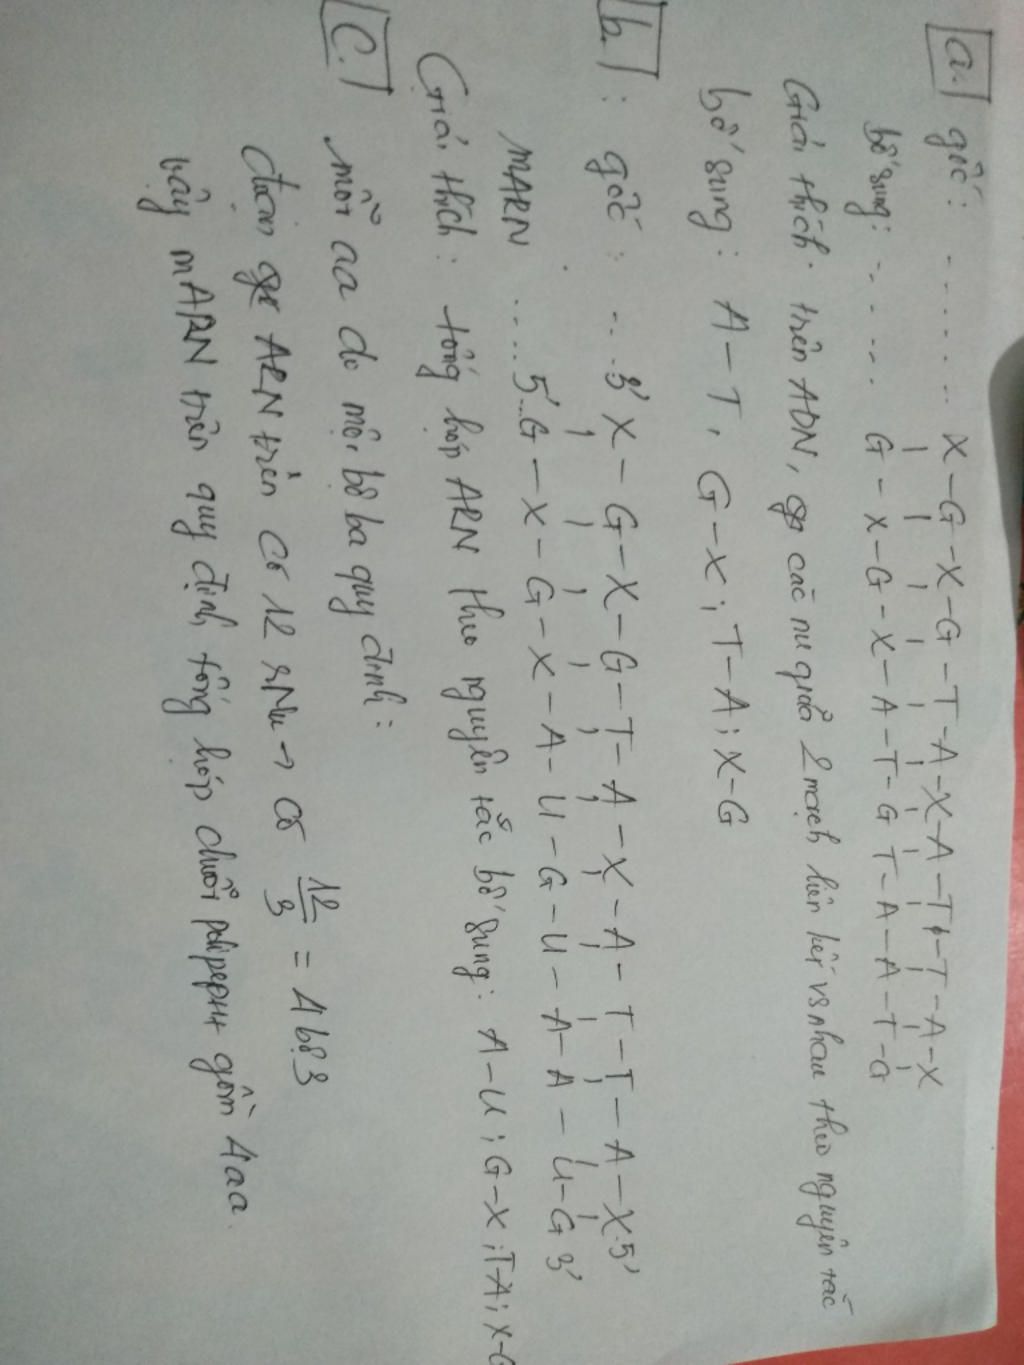 a. gốc: ...... X-G-X-G-T-A-X-A-T-T-A-X
bổ sung: ..... G-X-G-X-A-T-G T-A-A-T-G
Giải thích. trên ADN, các nu giữa 2 mạch liên kết vs nhau theo nguyên tắc
bổ sung: A-T, G-X; T-A; X-G
b. : gốc: ... 3' X-G-X-G-T-A-X-A-T-T-A-X.5'
mARN .... 5'..G-X-G-X-A-U-G-U-A-A-U-G 3'
Giải thích: tổng hợp ARN theo nguyên tắc bổ sung: A-U; G-X; T-A; X-G
C. mỗi aa do một bộ ba quy định:
đoạn ARN trên có 12 rNu → có 12/3 = 4 bộ 3
vậy mARN trên quy định tổng hợp chuỗi polipeptit gồm 4aa.